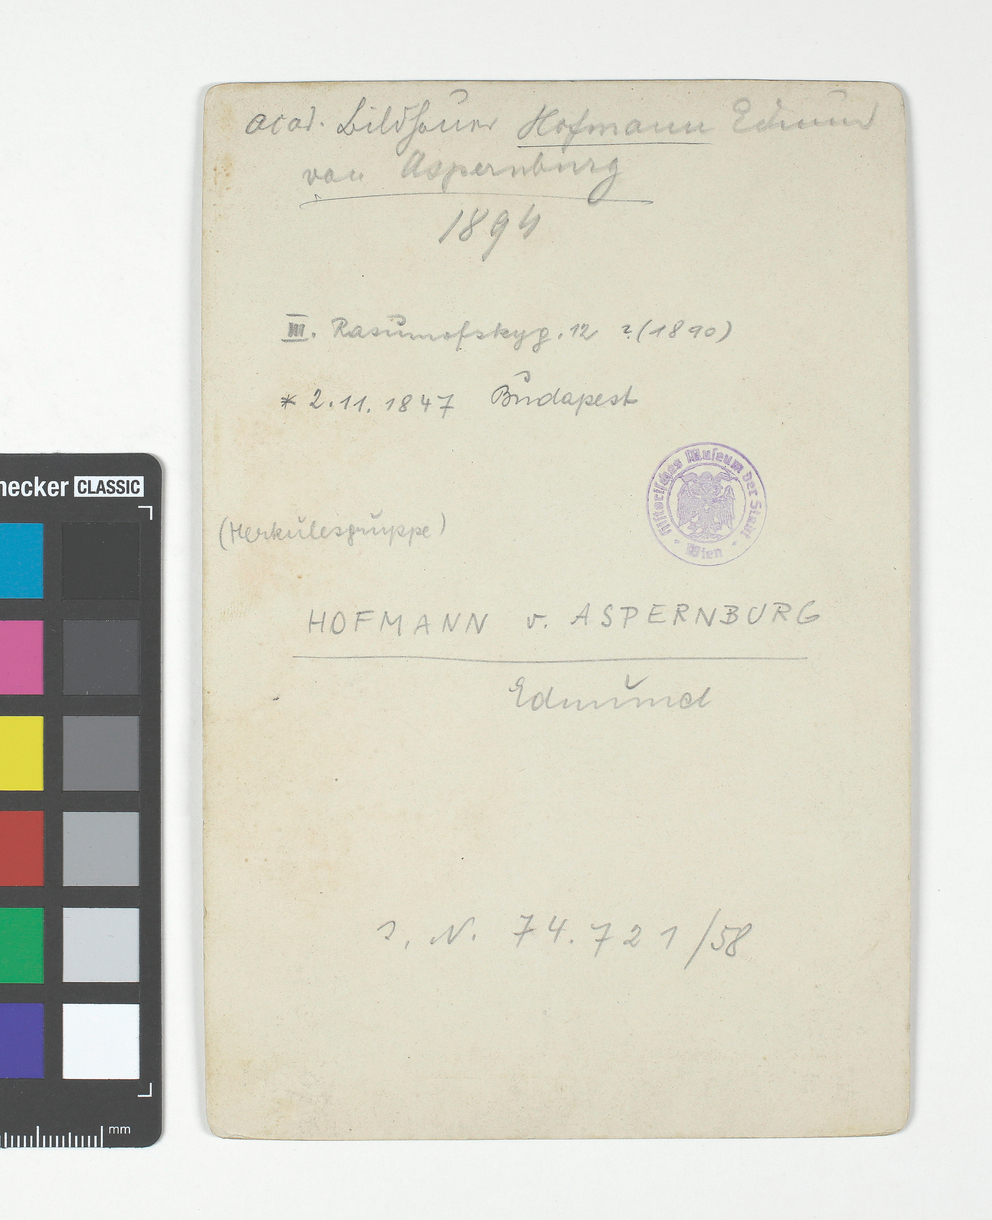 acad. Bildhauer Hofmann Edmund
von Aspernburg
1894
III. Rasumofskyg. 12 ? (1890)
* 2.11.1847 Budapest
Historisches Museum der Stadt
Wien
(Herkulesgruppe)
HOFMANN v. ASPERNBURG
Edmund
J. N. 74.721/58
necker CLASSIC
mm